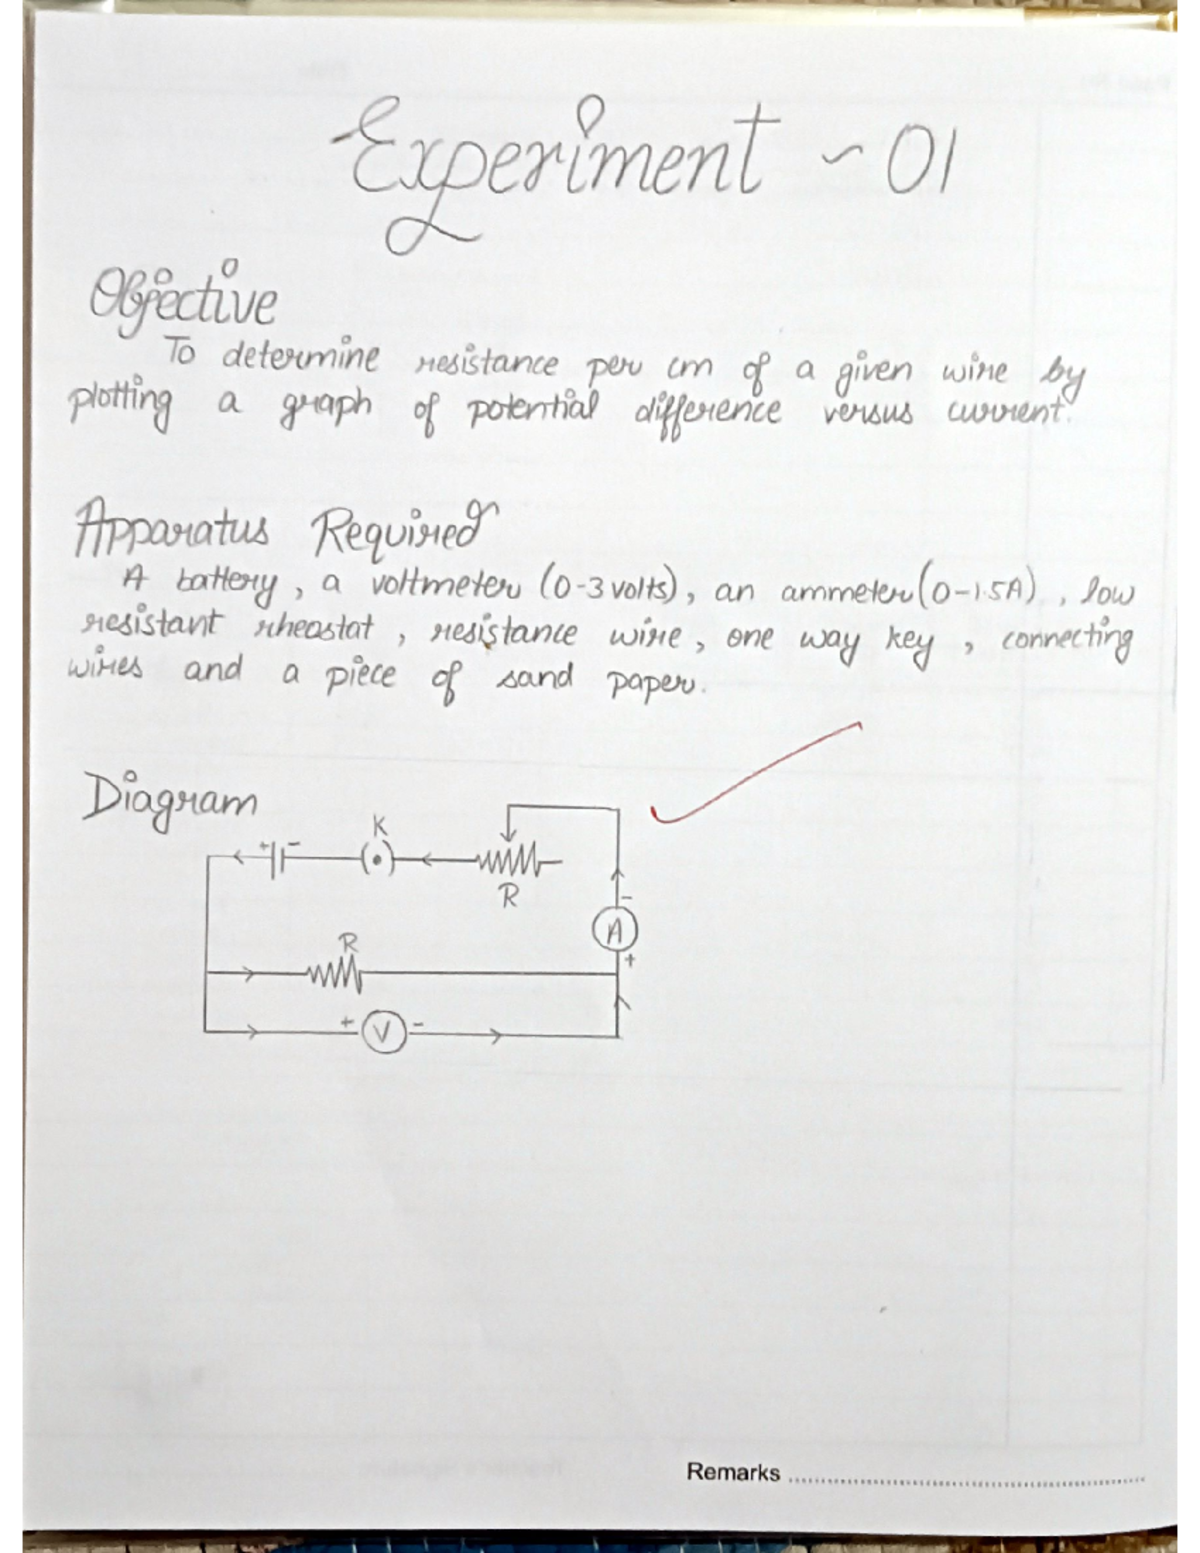 Experiment - 01
Objective
To determine resistance per cm of a given wire by
plotting a graph of potential difference versus current.
Apparatus Required
A battery, a voltmeter (0-3 volts), an ammeter (0-1.5A), low
resistant rheostat, resistance wire, one way key, connecting
wires and a piece of sand paper.
Diagram
K
+ -
R
-
A
+
R
+ V -
Remarks